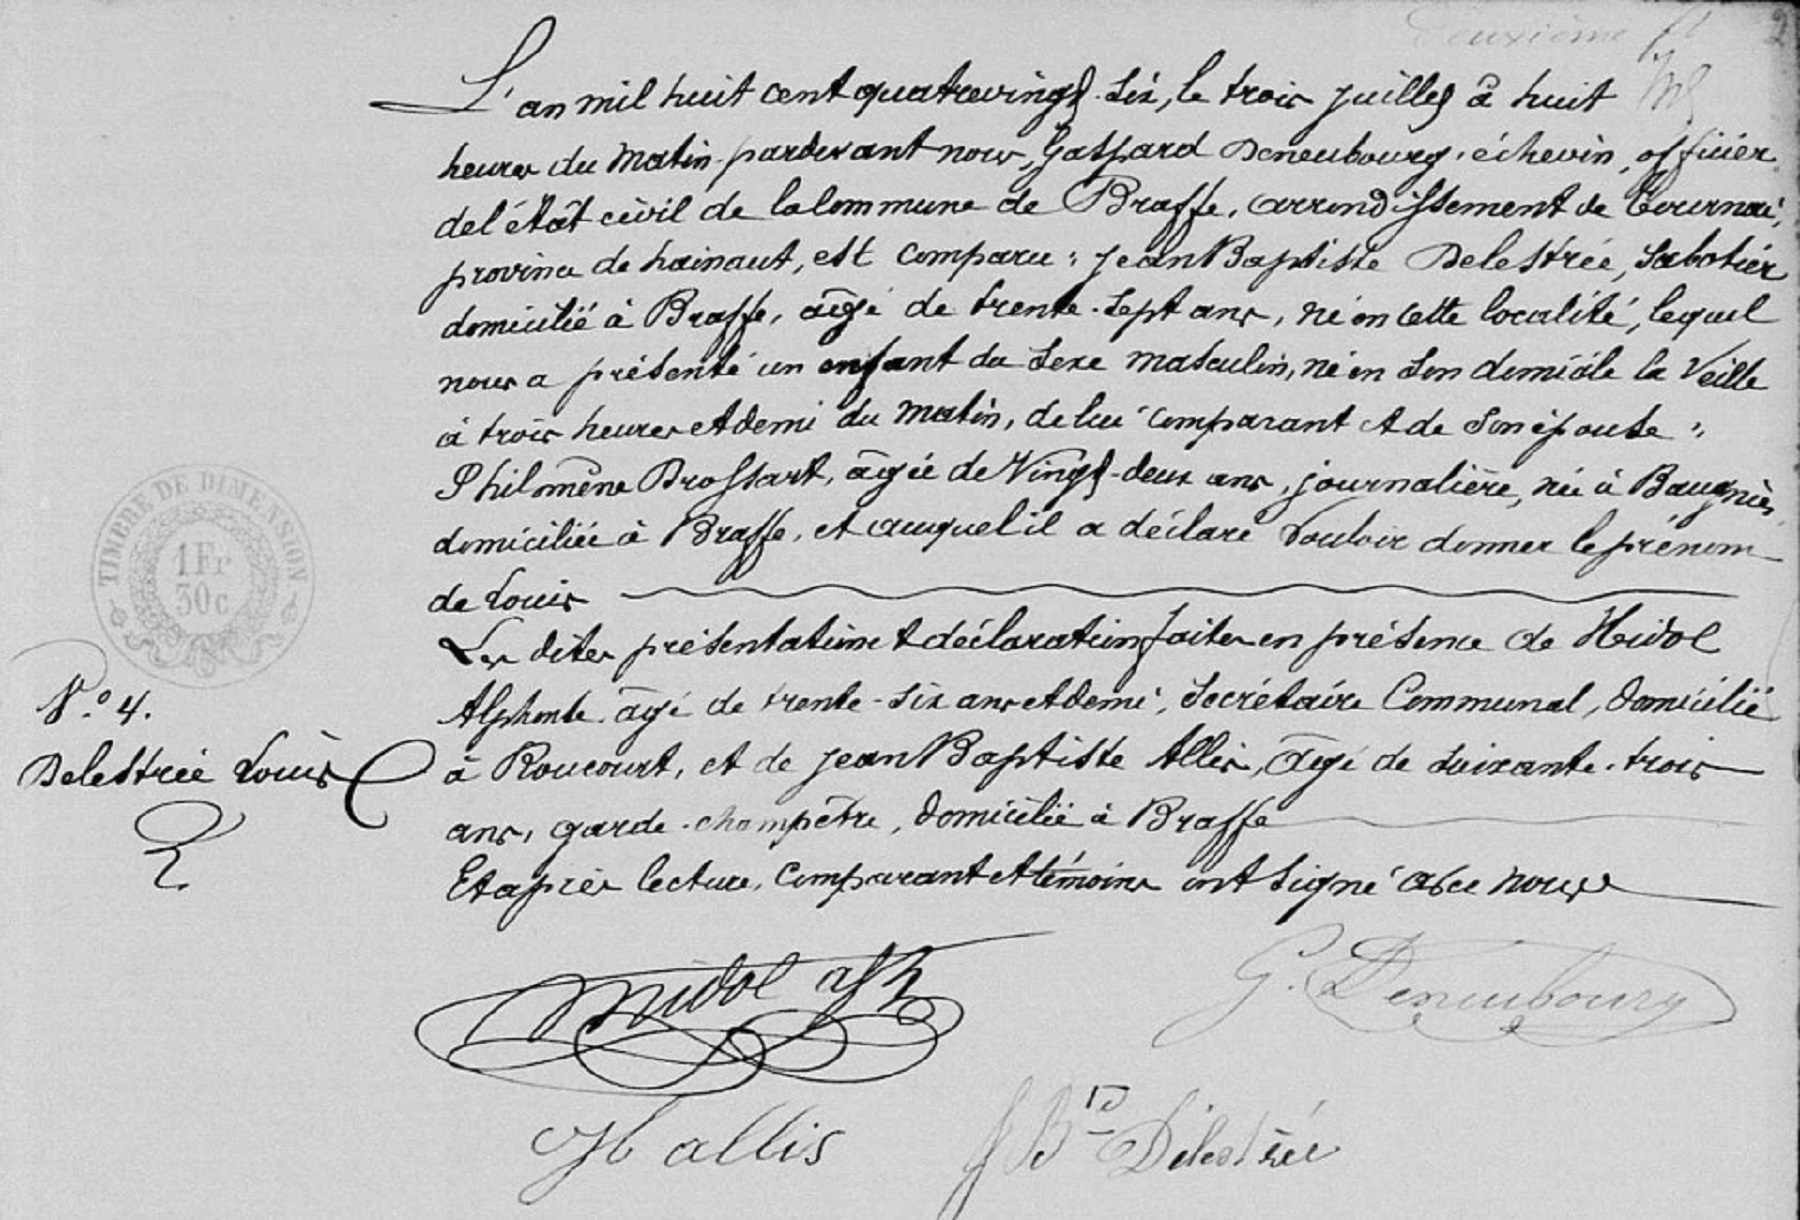 Deuxième
2
L'an mil huit cent quatrevingt-six, le trois juillet à huit
heures du matin pardevant nous, Gaspard Deneubourg, échevin, officier
de l'état civil de la commune de Braffe, arrondissement de Tournai,
province de hainaut, est comparu : Jean Baptiste Delestrée, Sabotier
domicilié à Braffe, âgé de trente-sept ans, né en cette localité, lequel
nous a présenté un enfant du sexe masculin, né en son domicile la veille
à trois heures et demi du matin, de lui comparant et de son épouse :
Philomène Brossart, âgée de vingt-deux ans, journalière, née à Baugnies,
domiciliée à Braffe, et auquel il a déclaré vouloir donner le prénom
de Louis
TIMBRE DE DIMENSION
1 Fr
30 c
Les dites présentation et déclaration faites en présence de Hidol
N.° 4.
Alphonse âgé de trente-six ans et demi, Secrétaire Communal, domicilié
Delestrée Louis
à Roucourt, et de Jean Baptiste Allis, âgé de soixante-trois
ans, garde-champêtre, domicilié à Braffe
Et après lecture, comparant et témoins ont signé avec nous
hidol alph
G. Deneubourg
JB allis
J Bte Delestrée